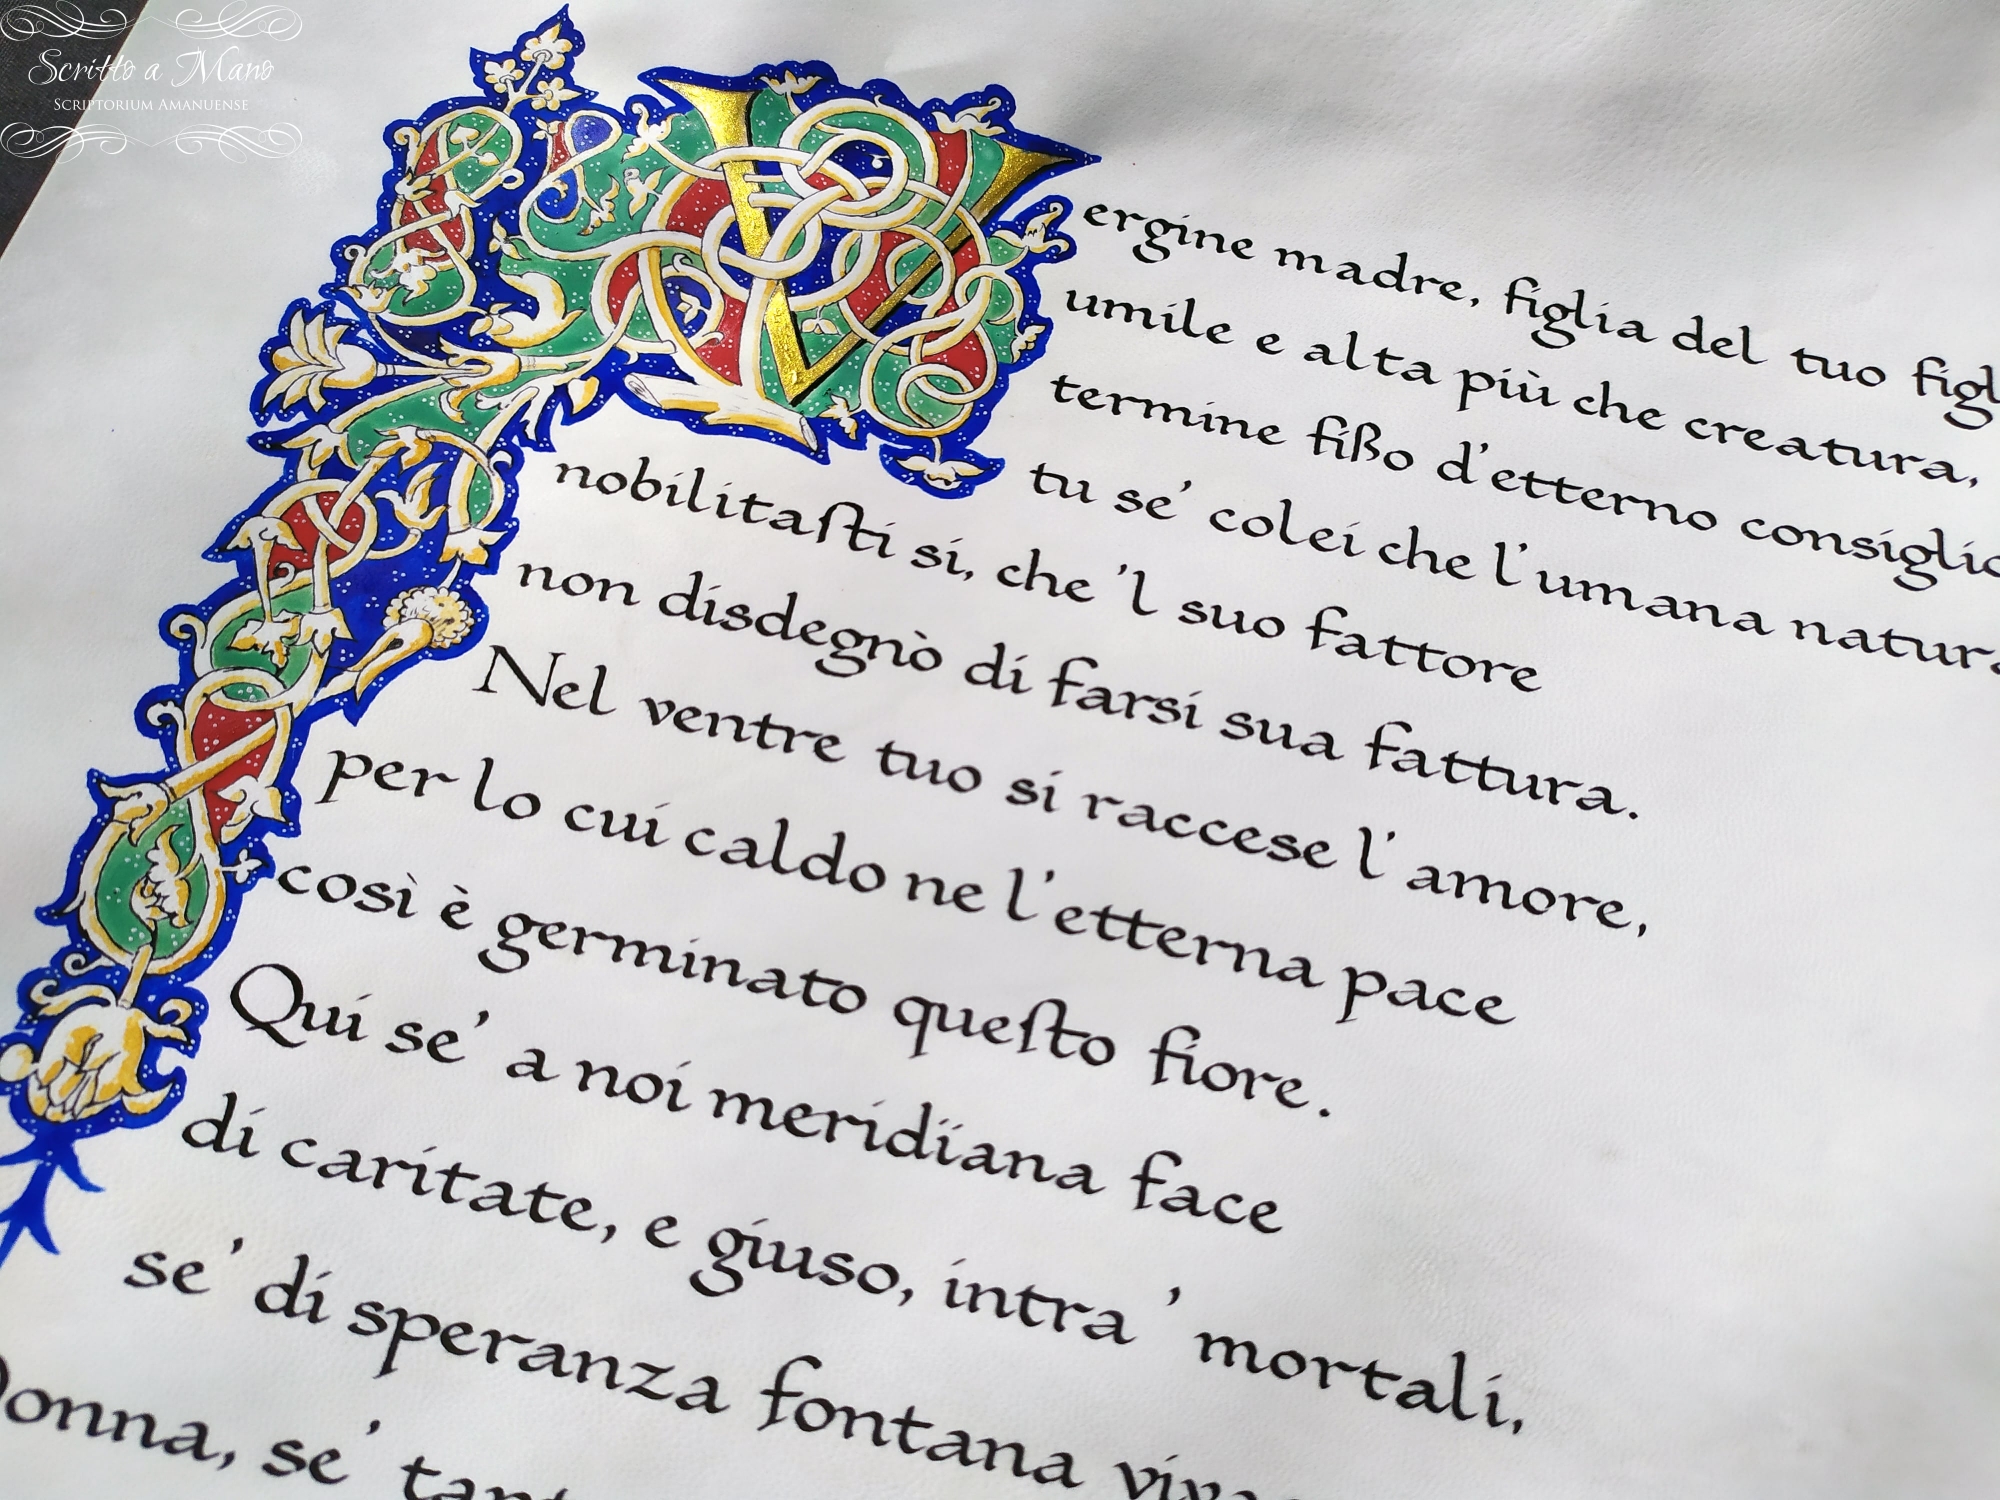 Scritto a Mano
SCRIPTORIUM AMANUENSE
Vergine madre, figlia del tuo figl
umile e alta più che creatura,
termine fißo d'etterno consiglio
tu se' colei che l'umana natura
nobilitaſti sí, che 'l suo fattore
non disdegnò di farsi sua fattura.
Nel ventre tuo si raccese l'amore,
per lo cui caldo ne l'etterna pace
così è germinato queſto fiore.
Qui se' a noi meridïana face
di caritate, e giuso, intra ' mortali,
se' di speranza fontana viva
Donna, se' tant